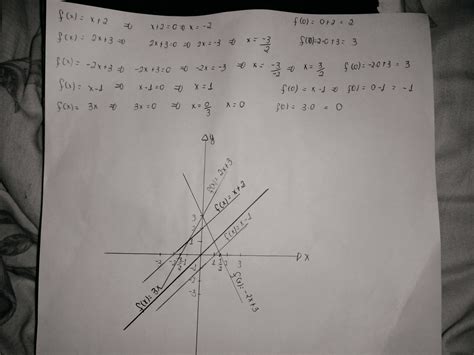 f(x) = x+2 ⇒ x+2=0 ⇒ x=-2 f(0) = 0+2 = 2
f(x) = 2x+3 ⇒ 2x+3=0 ⇒ 2x=-3 ⇒ x=-3/2 f(0)=2·0+3 = 3
f(x) = -2x+3 ⇒ -2x+3=0 ⇒ -2x=-3 ⇒ x=-3/-2 ⇒ x=3/2 f(0)=-2·0+3 = 3
f(x) = x-1 ⇒ x-1=0 ⇒ x=1 f(0)=x-1 ⇒ f(0)=0-1=-1
f(x) = 3x ⇒ 3x=0 ⇒ x=0/3 x=0 f(0)=3·0 = 0
y
f(x)=2x+3
f(x)=x+2
f(x)=x-1
3
2
1
-2 -3/2 -1 1 3/2 x
-1
-2
-3
f(x)=3x
f(x)=-2x+3